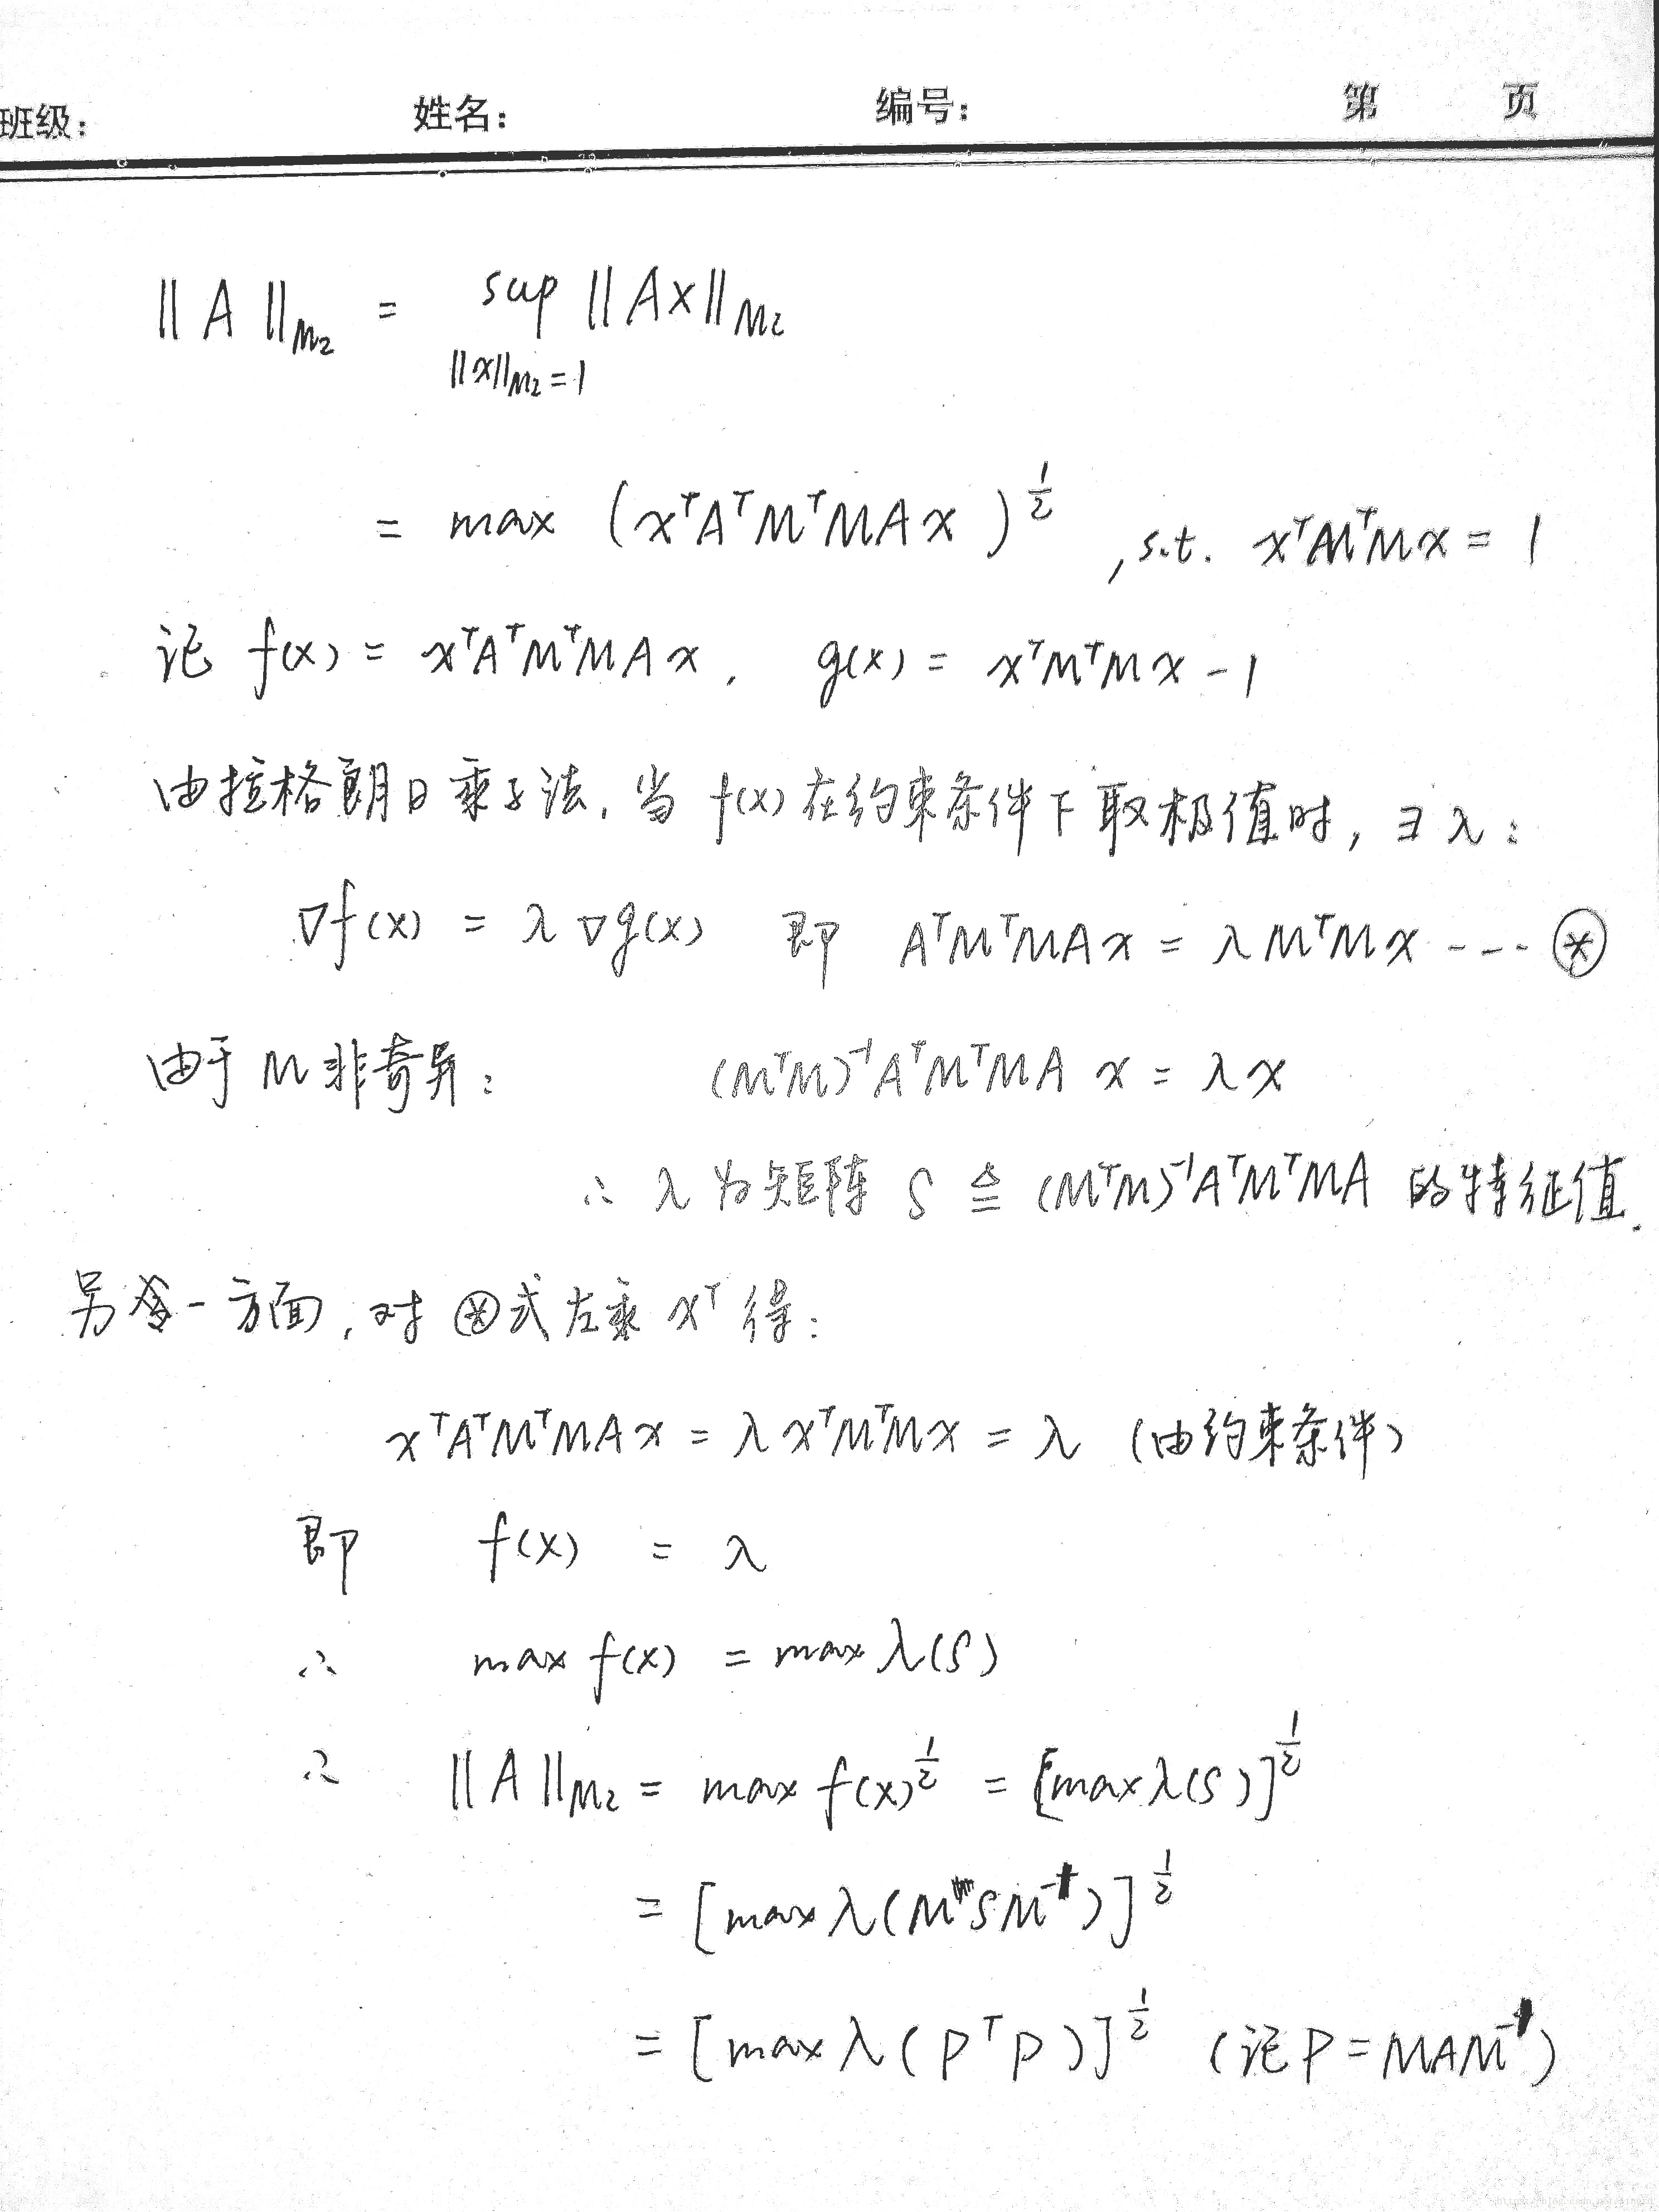 班级: 姓名: 编号: 第 页
‖A‖_{M₂} = sup ‖Ax‖_{M₂}
‖x‖_{M₂}=1
= max (xᵀAᵀMᵀMAx)^{1/2} , s.t. xᵀMᵀMx = 1
记 f(x) = xᵀAᵀMᵀMAx, g(x) = xᵀMᵀMx - 1
由拉格朗日乘子法, 当 f(x) 在约束条件下取极值时, ∃ λ:
∇f(x) = λ∇g(x) 即 AᵀMᵀMAx = λMᵀMx --- ⊛
由于 M 非奇异: (MᵀM)⁻¹AᵀMᵀMA x = λx
∴ λ 为矩阵 S ≙ (MᵀM)⁻¹AᵀMᵀMA 的特征值.
另一方面, 对 ⊛ 式左乘 xᵀ 得:
xᵀAᵀMᵀMAx = λxᵀMᵀMx = λ (由约束条件)
即 f(x) = λ
∴ max f(x) = max λ(S)
∴ ‖A‖_{M₂} = max f(x)^{1/2} = [max λ(S)]^{1/2}
= [max λ(MSM⁻¹)]^{1/2}
= [max λ(PᵀP)]^{1/2} (记 P = MAM⁻¹)